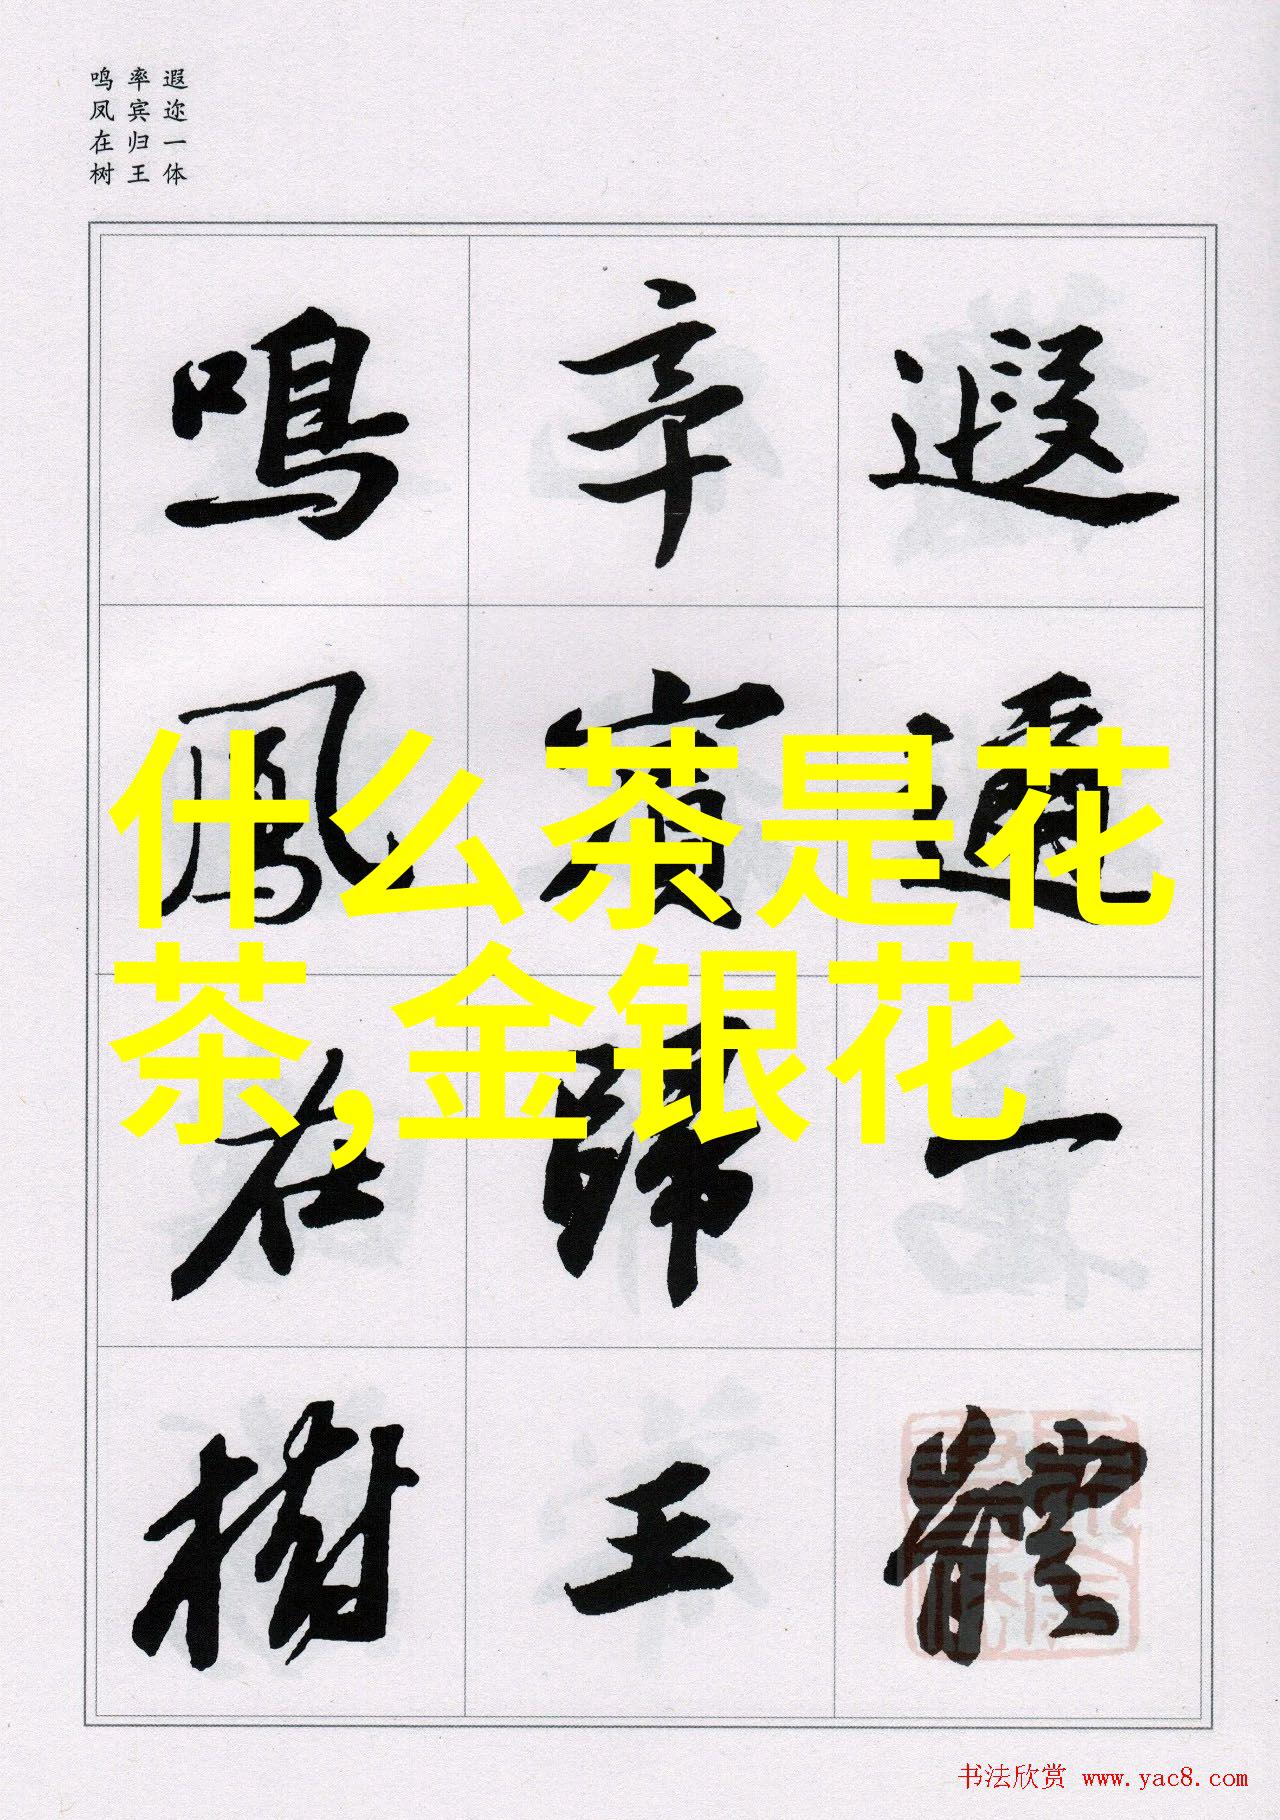 遐迩一体
率宾归王
鸣凤在树
遐邇一體
率賓歸王
鳴鳳在樹
什么茶是花
茶,金银花
书法欣赏 www.yac8.com